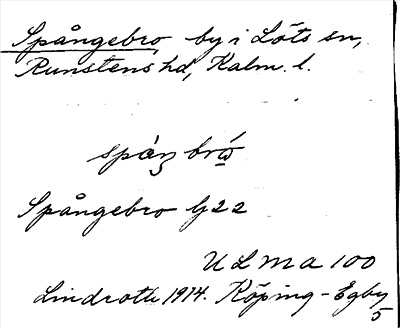 Spångebro, by i Löts sn,
Runstens hd, Kalm. l.
Spångebro
ULMA 100
Lindroth 1914. Köping-Egby
5